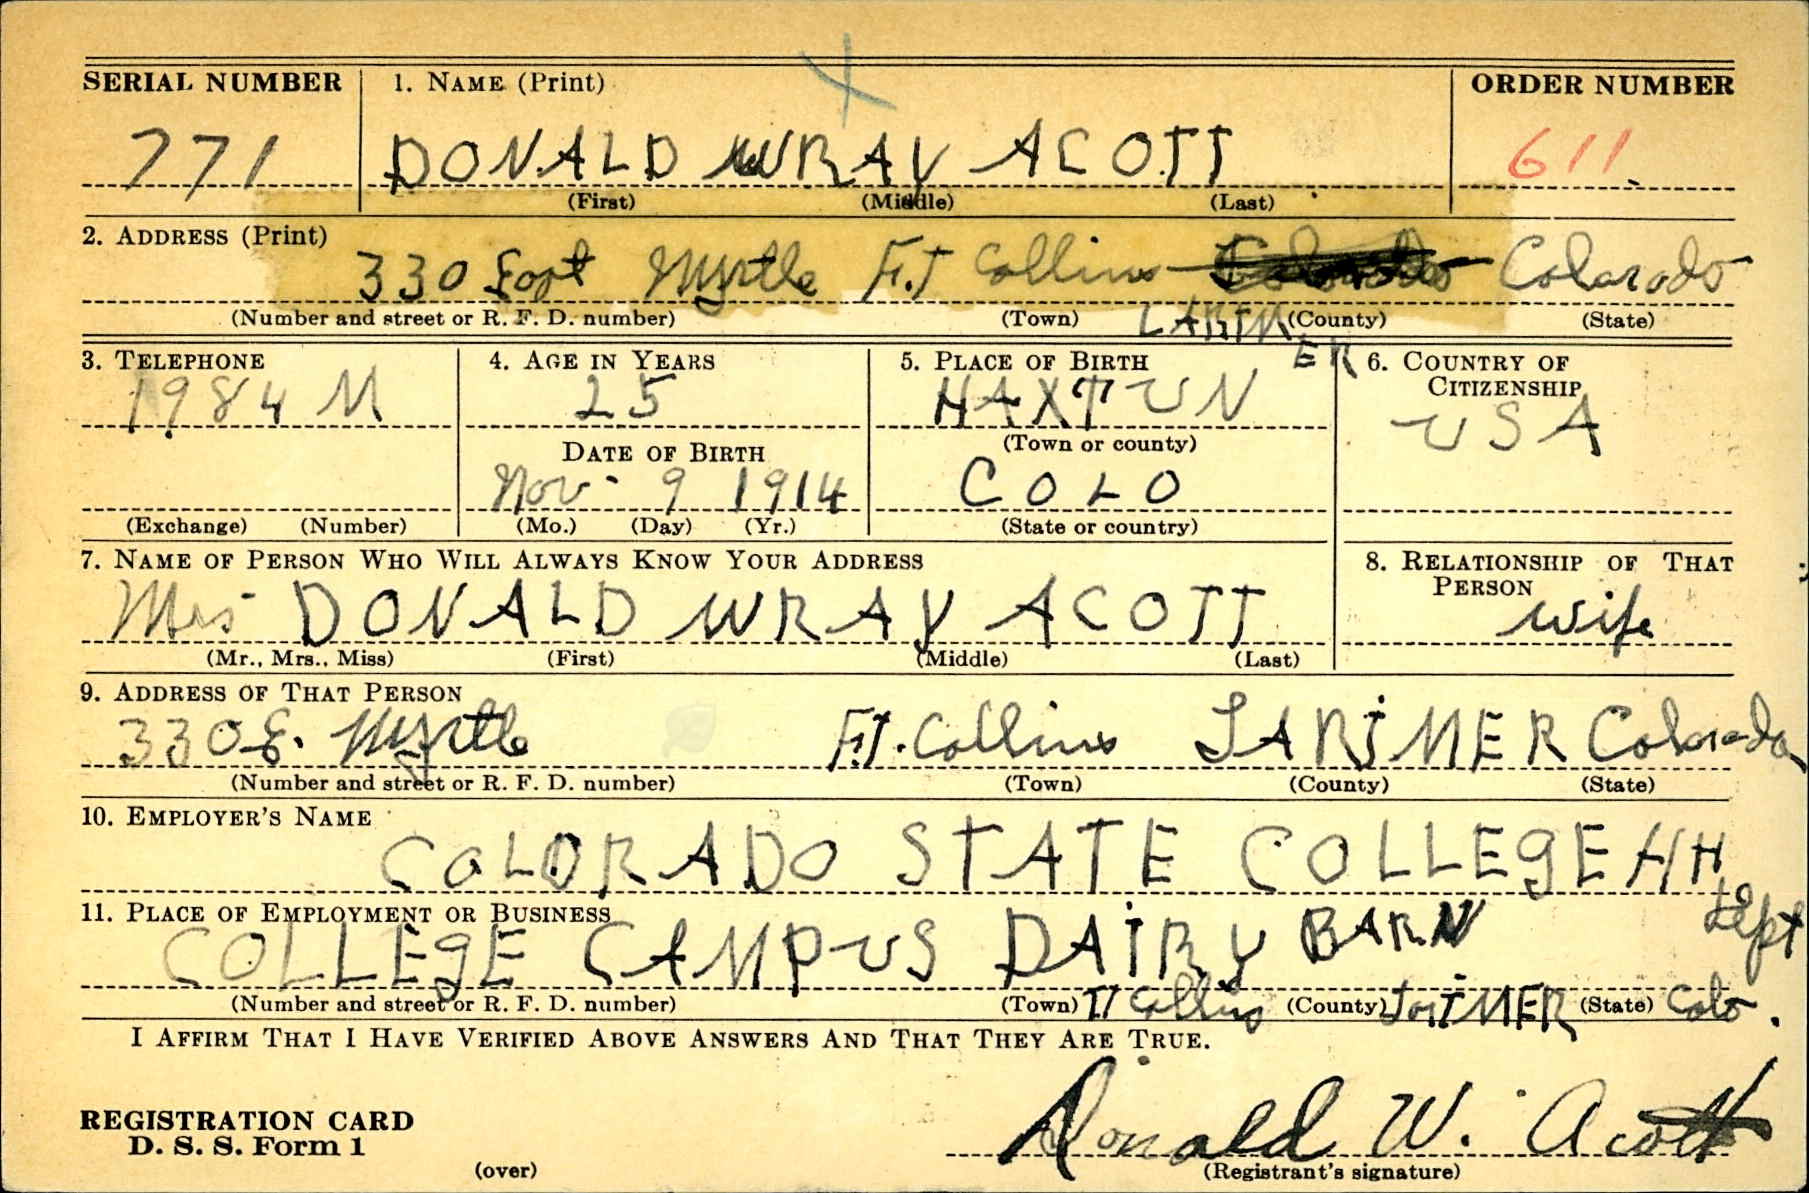 SERIAL NUMBER 1. NAME (Print) ORDER NUMBER
771 DONALD WRAY ACOTT 611
(First) (Middle) (Last)
2. ADDRESS (Print)
330 East Myrtle Ft Collins Colorado
(Number and street or R. F. D. number) (Town) LARIMER (County) (State)
3. TELEPHONE 4. AGE IN YEARS 5. PLACE OF BIRTH 6. COUNTRY OF
CITIZENSHIP
1984 M 25 HAXTUN USA
DATE OF BIRTH (Town or county)
Nov. 9 1914 COLO
(Exchange) (Number) (Mo.) (Day) (Yr.) (State or country)
7. NAME OF PERSON WHO WILL ALWAYS KNOW YOUR ADDRESS 8. RELATIONSHIP OF THAT
PERSON
Mrs DONALD WRAY ACOTT wife
(Mr., Mrs., Miss) (First) (Middle) (Last)
9. ADDRESS OF THAT PERSON
330 E. Myrtle Ft. Collins LARIMER Colorado
(Number and street or R. F. D. number) (Town) (County) (State)
10. EMPLOYER'S NAME
COLORADO STATE COLLEGE AH
Dept
11. PLACE OF EMPLOYMENT OR BUSINESS
COLLEGE CAMPUS DAIRY BARN
(Number and street or R. F. D. number) (Town) Ft Collins (County) LariMER (State) Colo.
I AFFIRM THAT I HAVE VERIFIED ABOVE ANSWERS AND THAT THEY ARE TRUE.
REGISTRATION CARD
D. S. S. Form 1
Donald W. Acott
(over) (Registrant's signature)